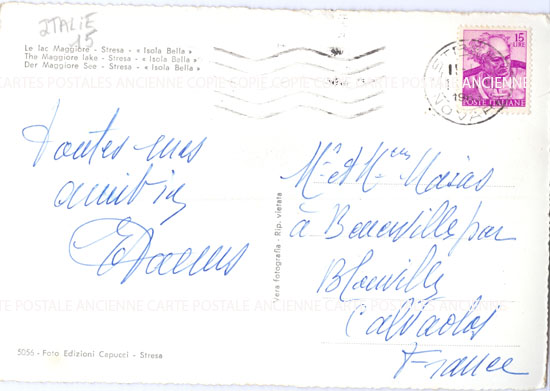 ITALIE
15
Le lac Maggiore - Stresa - « Isola Bella »
The Maggiore lake - Stresa - « Isola Bella »
Der Maggiore See - Stresa - « Isola Bella »
15
LIRE
POSTE ITALIANE
NOVARA
CARTE POSTALE ANCIENNE CARTE POSTALE ANCIENNE CARTE POSTALE ANCIENNE
Toutes mes
amitiés
Mr et Mme
à
par
Blonville
Calvados
France
Vera fotografia - Rip. vietata
CARTE POSTALE ANCIENNE CARTE POSTALE ANCIENNE CARTE POSTALE ANCIENNE
5056 - Foto Edizioni Capucci - Stresa